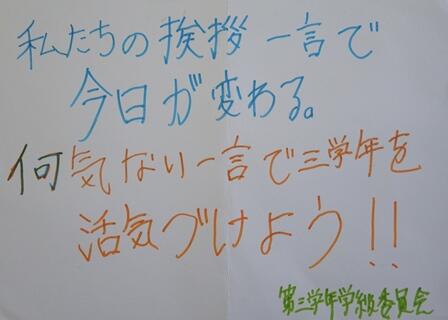 私たちの挨拶一言で
今日が変わる。
何気ない一言で三学年を
活気づけよう!!
第三学年学級委員会